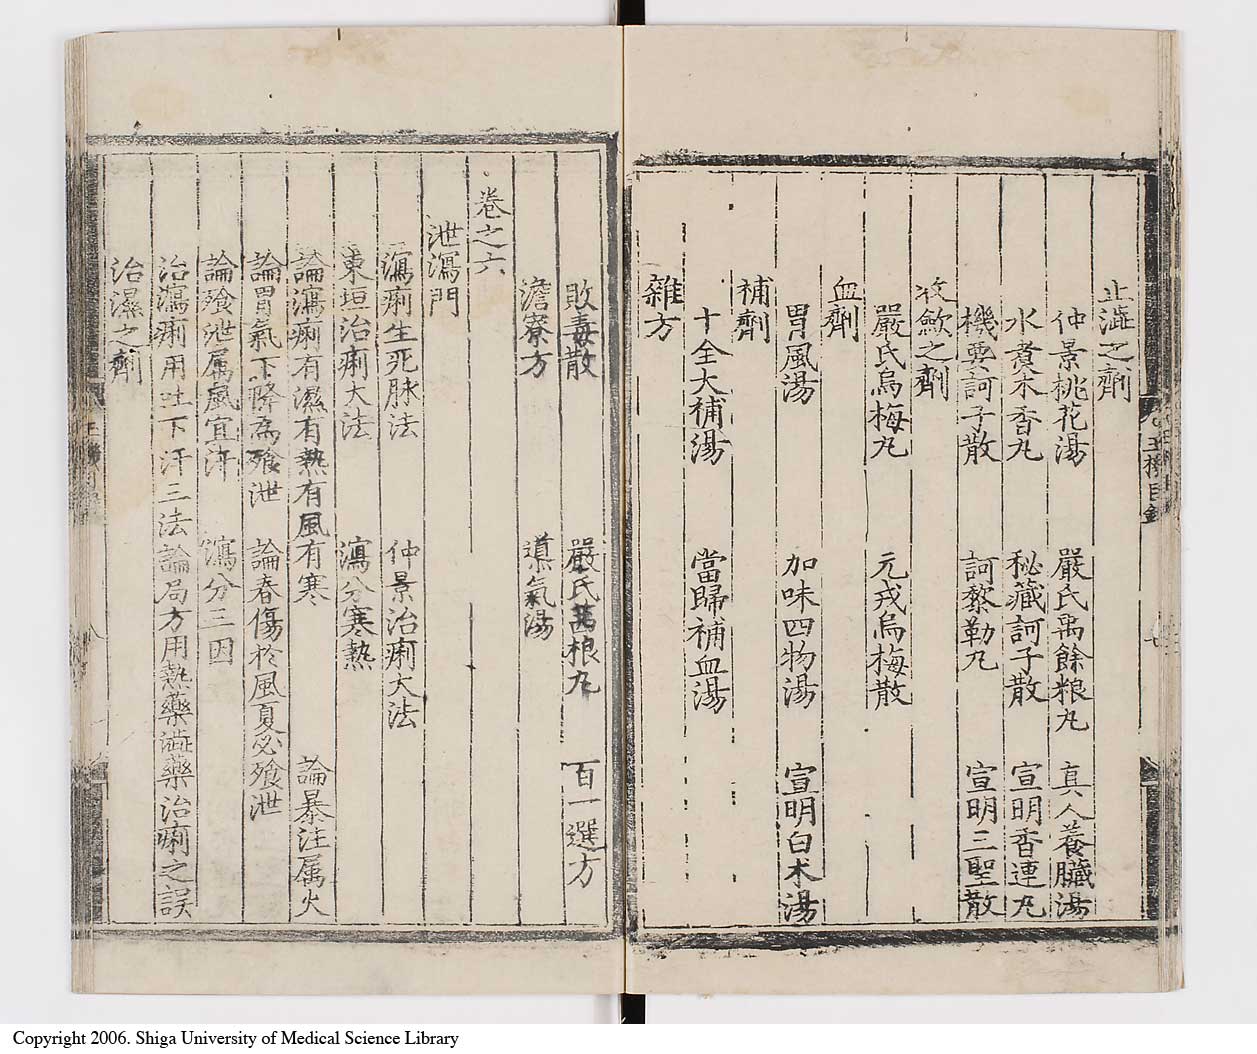 止澁之劑
仲景桃花湯 嚴氏禹餘粮丸 真人養臟湯
水煑木香丸 秘藏訶子散 宣明香連丸
機要訶子散 訶黎勒丸 宣明三聖散
收歛之劑
嚴氏烏梅丸 元戎烏梅散
血劑
胃風湯 加味四物湯 宣明白朮湯
補劑
十全大補湯 當歸補血湯
雜方
敗毒散 嚴氏萬粮丸 百一選方
澹寮方 導氣湯
卷之六
泄瀉門
瀉痢生死脉法 仲景治痢大法
東垣治痢大法 瀉分寒熱
論瀉痢有濕有熱有風有寒 論暴注属火
論胃氣下降為飱泄 論春傷於風夏必飱泄
論飱泄属風宜汗 瀉分三因
治瀉痢用吐下汗三法論局方用熱藥澁藥治痢之誤
治濕之劑
Copyright 2006. Shiga University of Medical Science Library